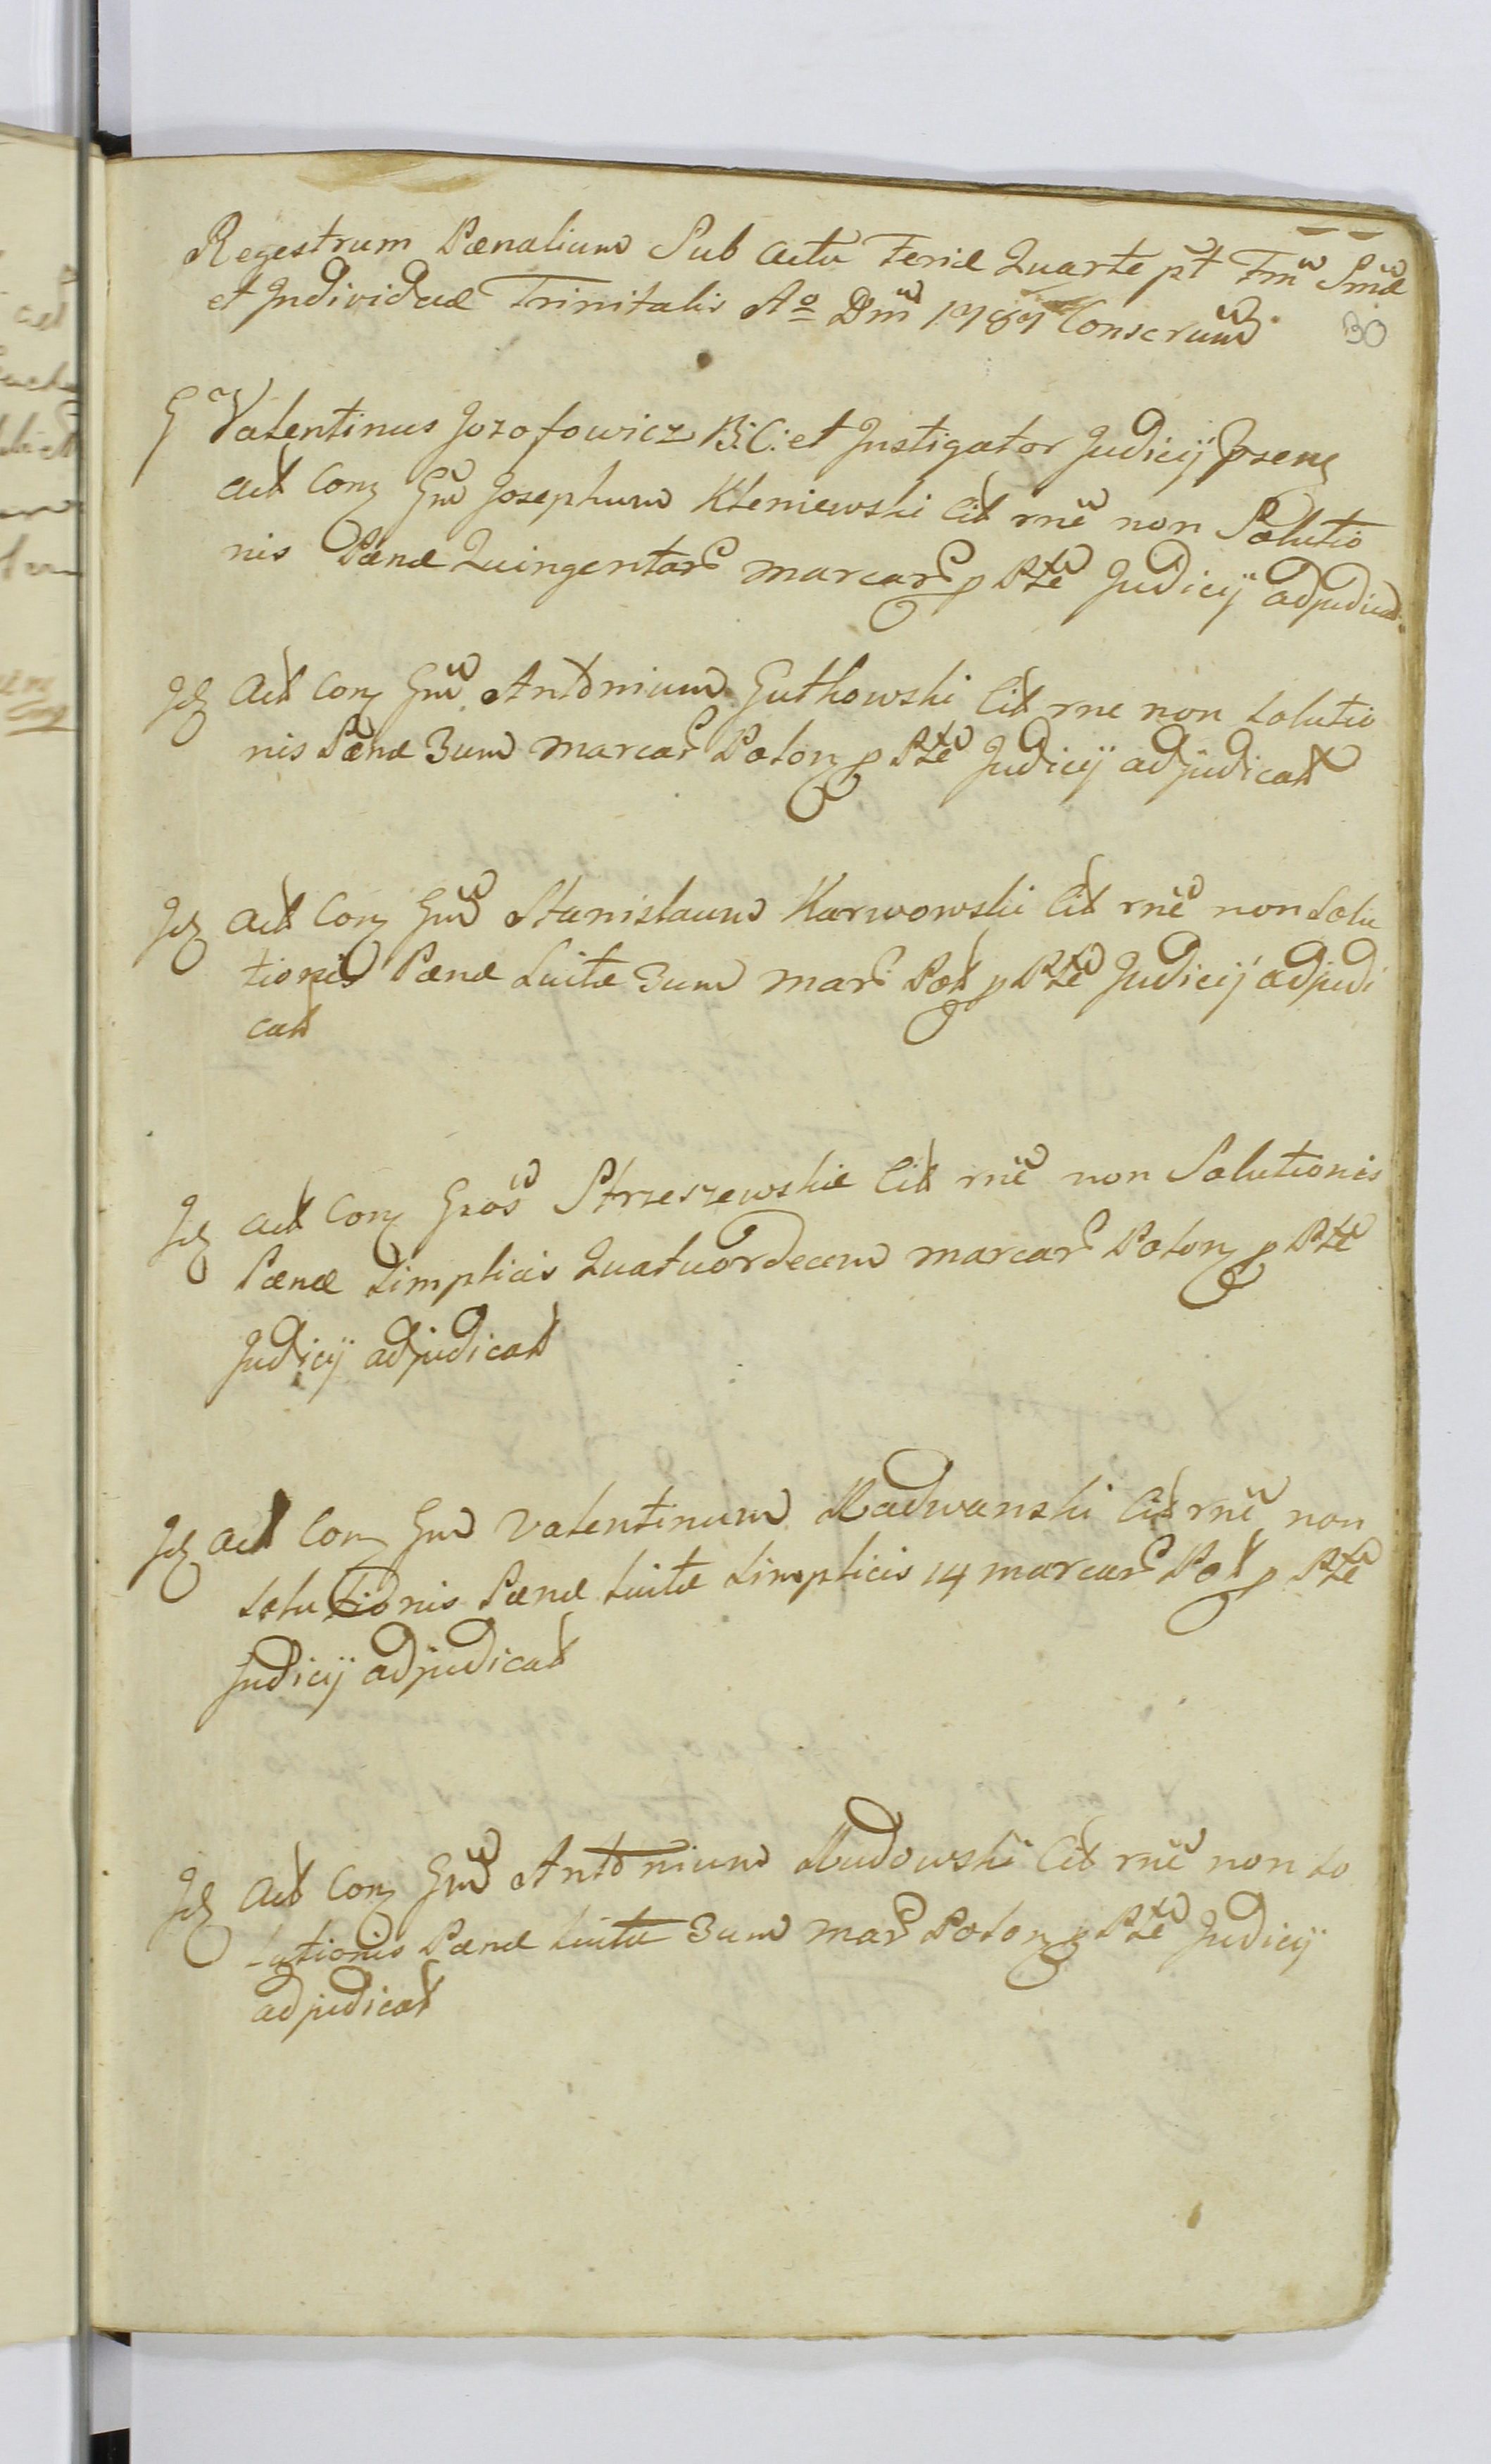 Regestrum Pænalium Sub actu Feriæ Quartæ pt Fm Smæ
et Individuæ Trinitatis Ao Dni 1787 Conscrum
30
G Valentinus Jozofowicz B: C: et Instigator Judicij Præsens
act Con Gm Josephum Kleniewski Cit rne non Solutio
nis Pænæ Quingentar marcar p Pte Judicij adjudicat.
Id act Con Gm Antonium Gutkowski Cit rne non Solutio
nis Pænæ 3um marcar Polon p Pte Judicij adjudicat
Id act Con Gm Stanislaum Karwowski Cit rne non Solu
tionis Pænæ Luitæ 3um mar Pol p Pte Judicij adjudi
cat
Id act Con Gsos Strzeszewskie Cit rne non Solutionis
Pænæ Simplicis Quatuordecem marcar Polon p Pte
Judicij adjudicat
Id act Con Gm Valentinum Radwanski Cit rne non
Solutionis Pænæ Luitæ Simplicis 14 marcar Pol p Pte
Judicij adjudicat
Id act Con Gm Antonium Rudowski Cit rne non So
lutionis Pænæ Luitæ 3um mar Polon p Pte Judicij
adjudicat